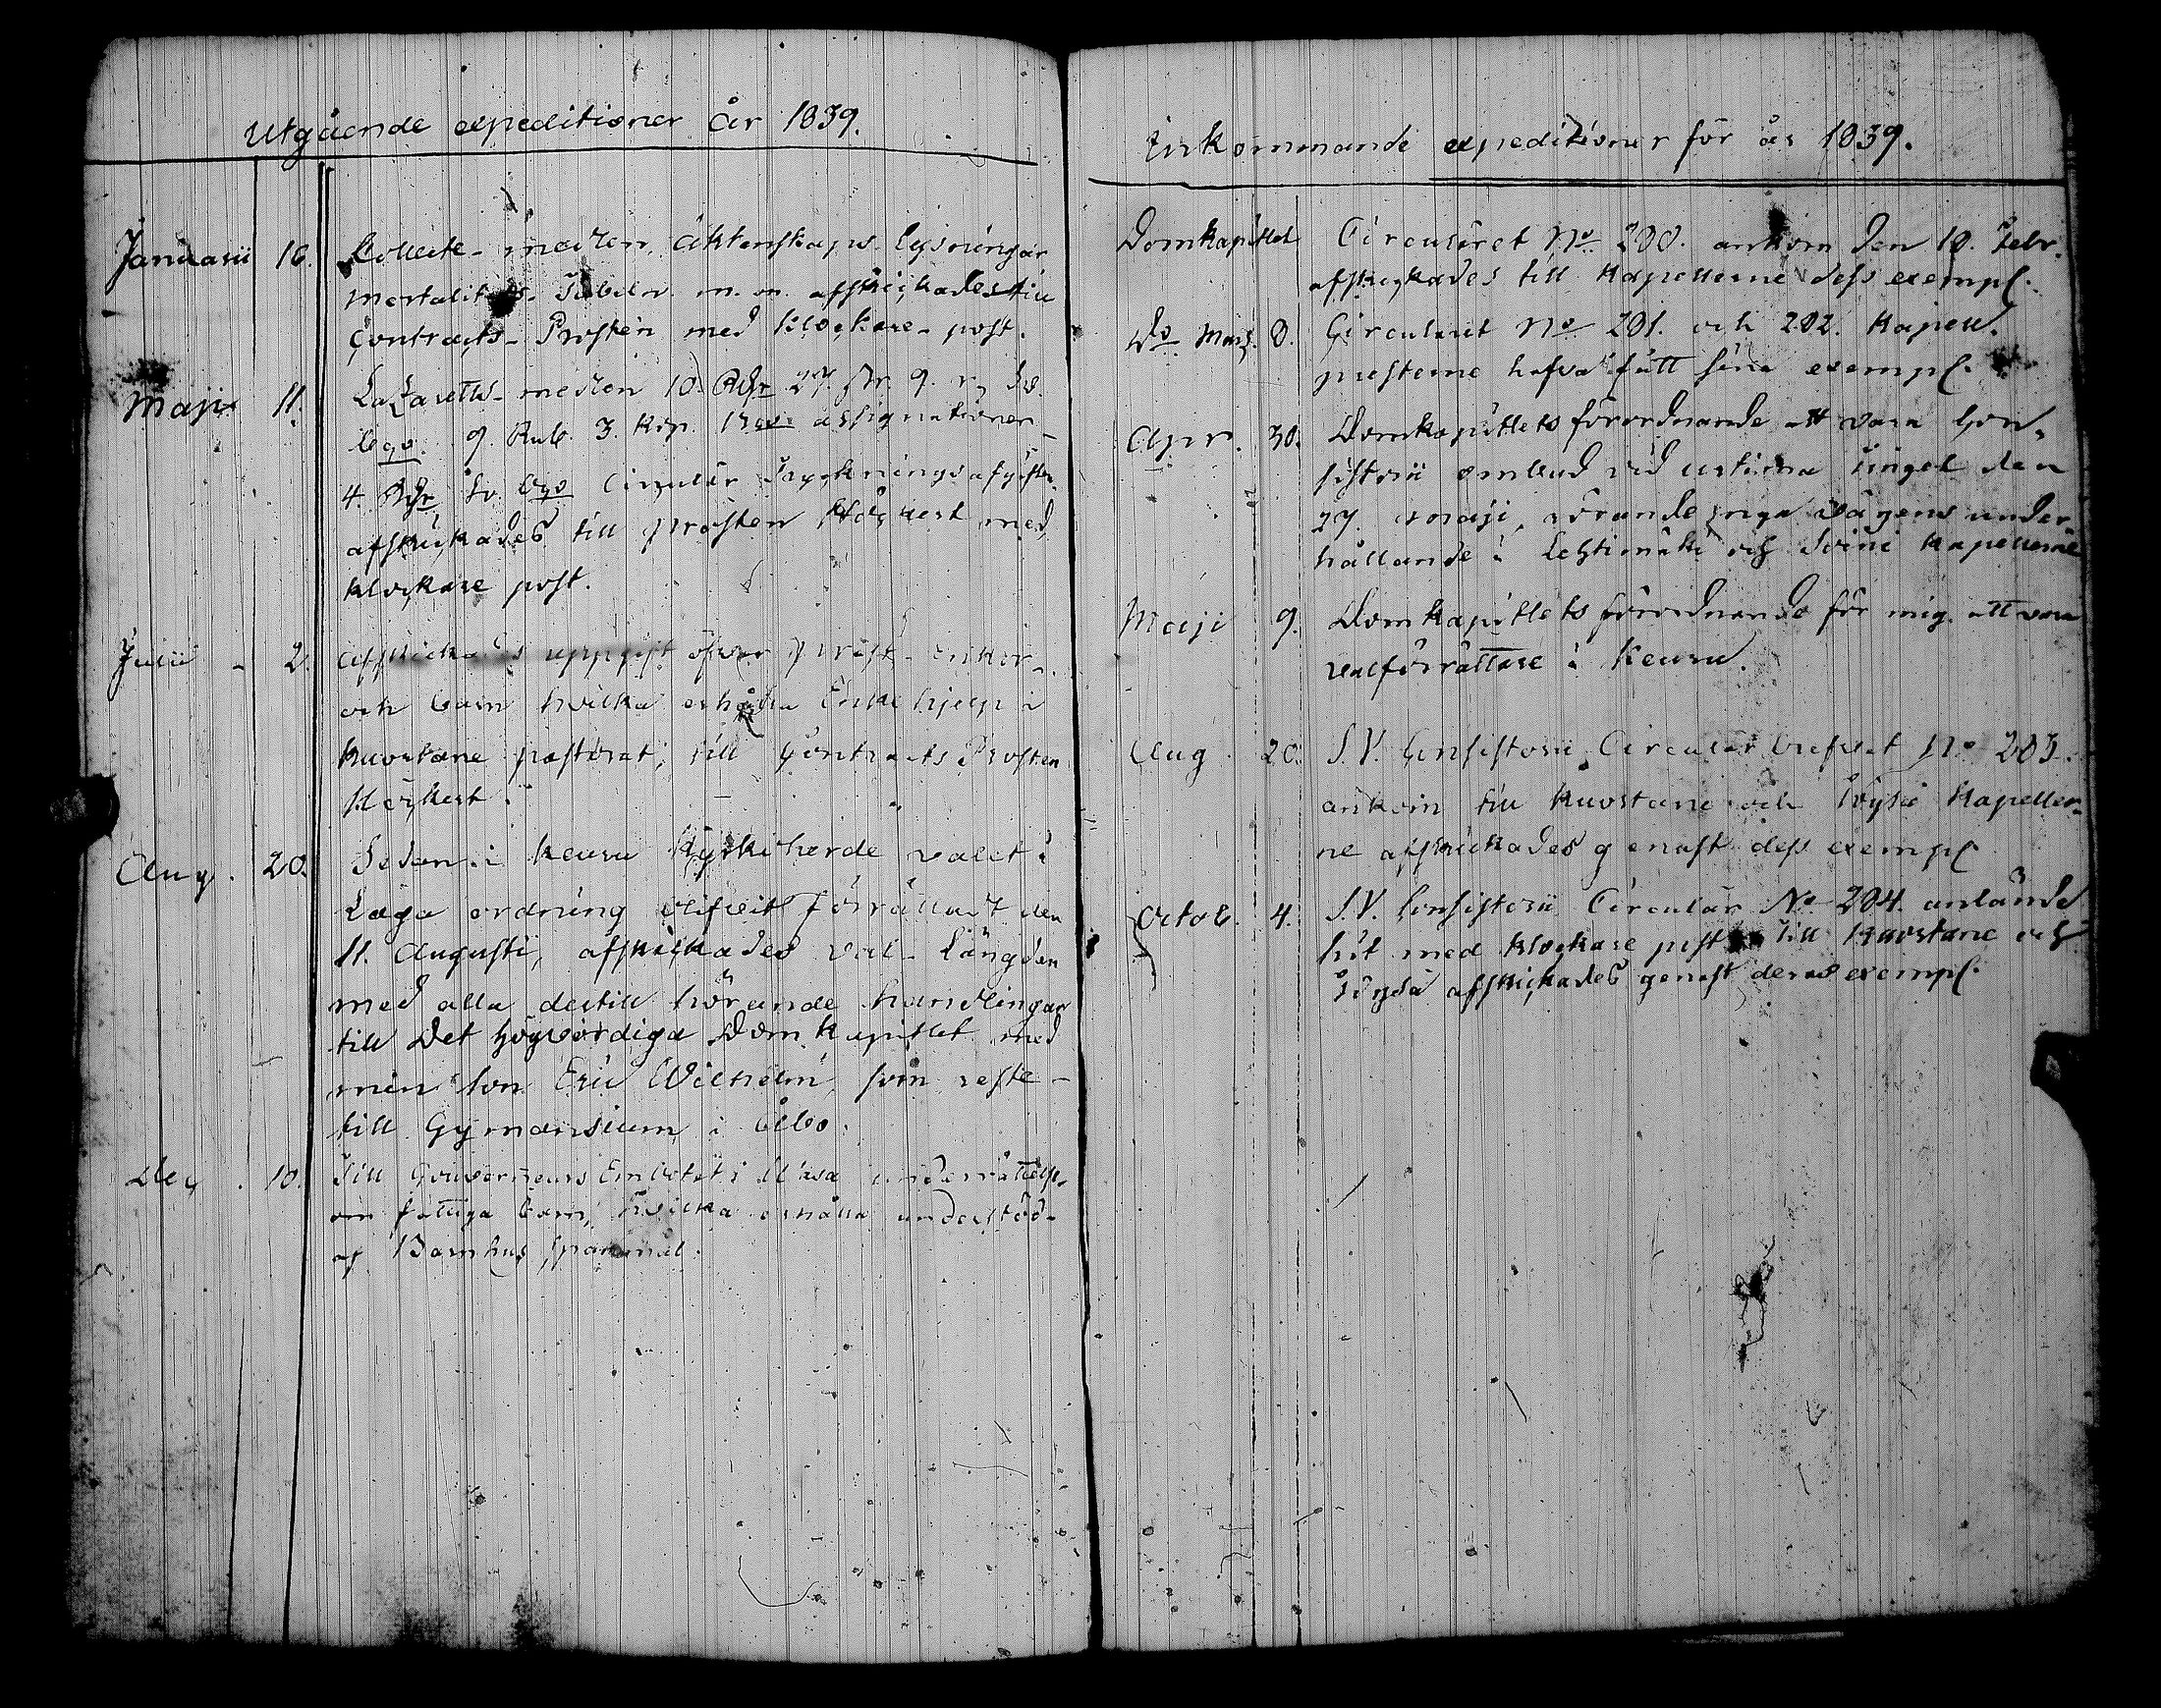 Utgående expeditioner År 1839.
Januarii 16. Collecte-medlen, Äktenskaps-Lysningar
Mortalitets-Tabeler m. m. afskickades till
Contracts-Prosten med klockare-post.
Maji 11. Lazaretts-medlen 10 Rdr 27 sk. 9. r. 
Bco. 9. Rub. 3. Kop. assignationer
4. Rdr Bco Circulär Tryckningsafgifter
afskickades till Prosten med
klockare post.
Julii 2. Afskickades uppgift öfver Prest-Enkor
och barn hvilka erhålla Enke hjelp i
Kuortane pastorat, till Contracts Prosten

Aug. 20. Sedan i Keuru Kyrkoherde valet i
Laga ordning blifvit förrättadt den
11. Augusti, afskickades Val-Längden
med alla dertill hörande handlingar
till Det Högvördiga Domkapitlet med
min Son Eric Wilhelm, som reste
till Gymnasium i Åbo.
Dec. 10. Till Gouverneurs Embetet i Wasa underrättelse
om fattiga barn, hvilka erhålla understöd
af Barnhus

Inkommande expeditioner för år 1839.
Domkapitlet Circuläret No 200. ankom den 18. Febr.
afskickades till Kapellerne dess exempl.
Do Mars. 8. Circuläret No 201. och 202. Kapell.
presterne hafva fått sina exempl.
Apr. 30. Domkapitlets förordnande att vara Con-
sistorii ombud vid urtima tinget den
27. Maji, rörande nya vägens under-
hållande i Lehtimäki och Soini Kapellerne
Maji 9. Domkapitlets förordnande för mig att vara
valförrättare i Keuru.
Aug. 20. S.V. Consistorii Circulär brefvet No 203.
ankom till Kuortane och Töysä Kapeller-
ne afskickades genast dess exempl.
Octob. 4. S.V. Consistorii Circulär No 204. anlände
hit med klockare post till Kuortane och
Töysä afskickades genast deras exempl.